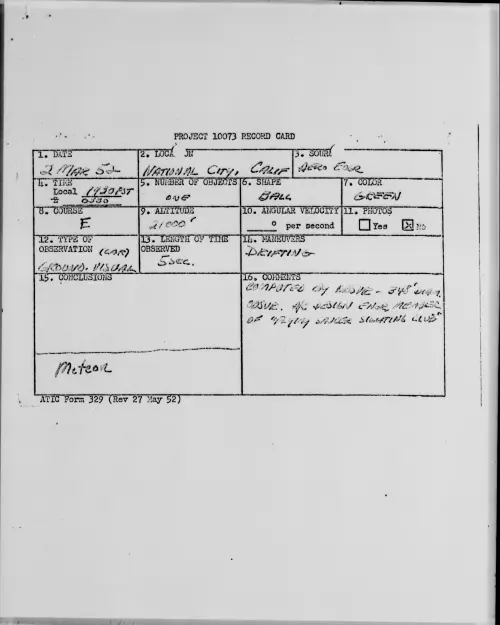 PROJECT 10073 RECORD CARD
1. DATE
2 MAR 52
2. LOC
NATIONAL CITY, CALIF
3. SOUR
AERO ENGR
4. TIME
Local 1930 PST
0330
5. NUMBER OF OBJECTS
ONE
6. SHAPE
BALL
7. COLOR
GREEN
8. COURSE
E
9. ALTITUDE
21000'
10. ANGULAR VELOCITY
° per second
11. PHOTOS
Yes
X No
12. TYPE OF
OBSERVATION (CAR)
GROUND. VISUAL
13. LENGTH OF TIME
OBSERVED
5 SEC.
14. MANEUVERS
DRIFTING
15. CONCLUSIONS
Meteor
16. COMMENTS
COMPUTED BY ABOVE -
ABOVE. A/C DESIGN ENGR, MEMBER
OF "FLYING SAUCER SIGHTING CLUB"
ATIC Form 329 (Rev 27 May 52)